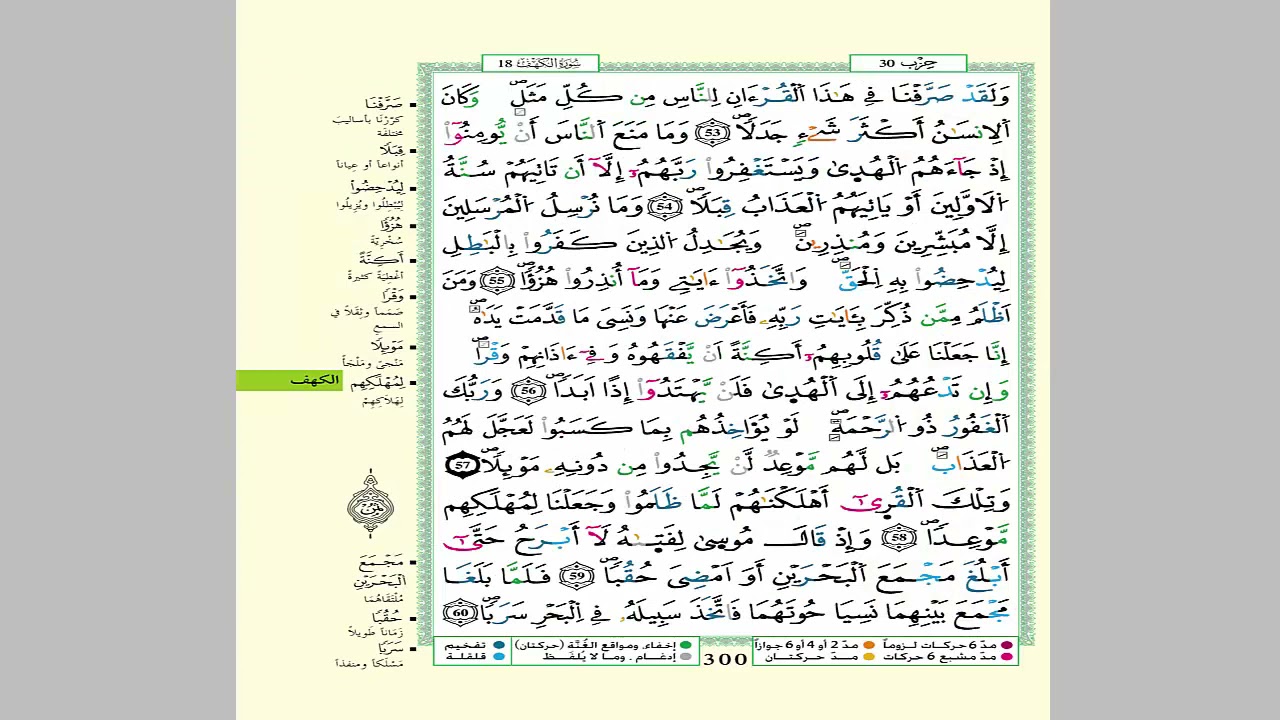 سُورَةُ الكَهْف 18
حِزْب 30
وَلَقَدْ صَرَّفْنَا فِے هَٰذَا اَ۬لْقُرْءَانِ لِلنَّاسِ مِن كُلِّ مَثَلٖۖ وَكَانَ
اَ۬لِانسَٰنُ أَكْثَرَ شَےْءٖ جَدَلاٗۖ 53 وَمَا مَنَعَ اَ۬لنَّاسَ أَنْ يُّومِنُوٓاْ
إِذْ جَآءَهُمُ اُ۬لْهُدٜىٰ وَيَسْتَغْفِرُواْ رَبَّهُمُۥٓ إِلَّآ أَن تَاتِيَهُمْ سُنَّةُ
اُ۬لَاوَّلِينَ أَوْ يَاتِيَهُمُ اُ۬لْعَذَابُ قِبَلاٗۖ 54 وَمَا نُرْسِلُ اُ۬لْمُرْسَلِينَ
إِلَّا مُبَشِّرِينَ وَمُنذِرِينَۖ وَيُجَٰدِلُ اُ۬لذِينَ كَفَرُواْ بِالْبَٰطِلِ
لِيُدْحِضُواْ بِهِ اِ۬لْحَقَّۖ وَاتَّخَذُوٓاْ ءَايَٰتِے وَمَآ أُنذِرُواْ هُزُؤاٗۖ 55 وَمَنَ
اَظْلَمُ مِمَّن ذُكِّرَ بِـَٔايَٰتِ رَبِّهِۦ فَأَعْرَضَ عَنْهَا وَنَسِىَ مَا قَدَّمَتْ يَدَٰهُۖ
إِنَّا جَعَلْنَا عَلَىٰ قُلُوبِهِمُۥٓ أَكِنَّةً اَنْ يَّفْقَهُوهُ وَفِےٓ ءَاذَانِهِمْ وَقْراٗۖ
وَإِن تَدْعُهُمُۥٓ إِلَى اَ۬لْهُدٜىٰ فَلَنْ يَّهْتَدُوٓاْ إِذاً اَبَداٗۖ 56 وَرَبُّكَ
اَ۬لْغَفُورُ ذُو اُ۬لرَّحْمَةِۖ لَوْ يُوَ۬اخِذُهُم بِمَا كَسَبُواْ لَعَجَّلَ لَهُمُ
اُ۬لْعَذَابَۖ بَل لَّهُم مَّوْعِدٞ لَّنْ يَّجِدُواْ مِن دُونِهِۦ مَوْئِلاٗۖ 57
وَتِلْكَ اَ۬لْقُرٜىٰٓ أَهْلَكْنَٰهُمْ لَمَّا ظَلَمُواْ وَجَعَلْنَا لِمُهْلَكِهِم
مَّوْعِداٗۖ 58 وَإِذْ قَالَ مُوسٜىٰ لِفَتٜىٰهُ لَآ أَبْرَحُ حَتَّىٰٓ
أَبْلُغَ مَجْمَعَ اَ۬لْبَحْرَيْنِ أَوَ اَمْضِىَ حُقُباٗۖ 59 فَلَمَّا بَلَغَا
مَجْمَعَ بَيْنِهِمَا نَسِيَا حُوتَهُمَا فَاتَّخَذَ سَبِيلَهُۥ فِے اِ۬لْبَحْرِ سَرَباٗۖ 60
صَرَّفْنَا
كَرَّرْنَا بأساليبَ
مختلفة
قِبَلًا
أنواعاً أو عِيانًا
لِيُدْحِضُواْ
لِيُبْطِلُوا ويُزِيلُوا
هُزُؤًا
سُخْرِيَّةً
أَكِنَّةً
أغْطِيَةً كثيرةً
وَقْرًا
صَمَماً وثِقَلاً في
السمع
مَوْئِلًا
مَنْجىً ومَلْجَأً
لِمُهْلَكِهِم
لِهَلَاكِهِمْ
الكهف
مَجْمَعَ
اَ۬لْبَحْرَيْنِ
مُلْتَقَاهُمَا
حُقُبًا
زَمَاناً طَوِيلاً
سَرَبًا
مَسْلَكاً ومنفذاً
مدّ 6 حركات لـزوماً
مدّ 2 أو 4 أو 6 جوازاً
إخفاء، ومواقع الغُنَّة (حركتان)
تفخيم
مدّ مشبع 6 حركات
مـدّ حركتـان
إدغام ، ومـا لا يُلفـظ
قلقلة
300